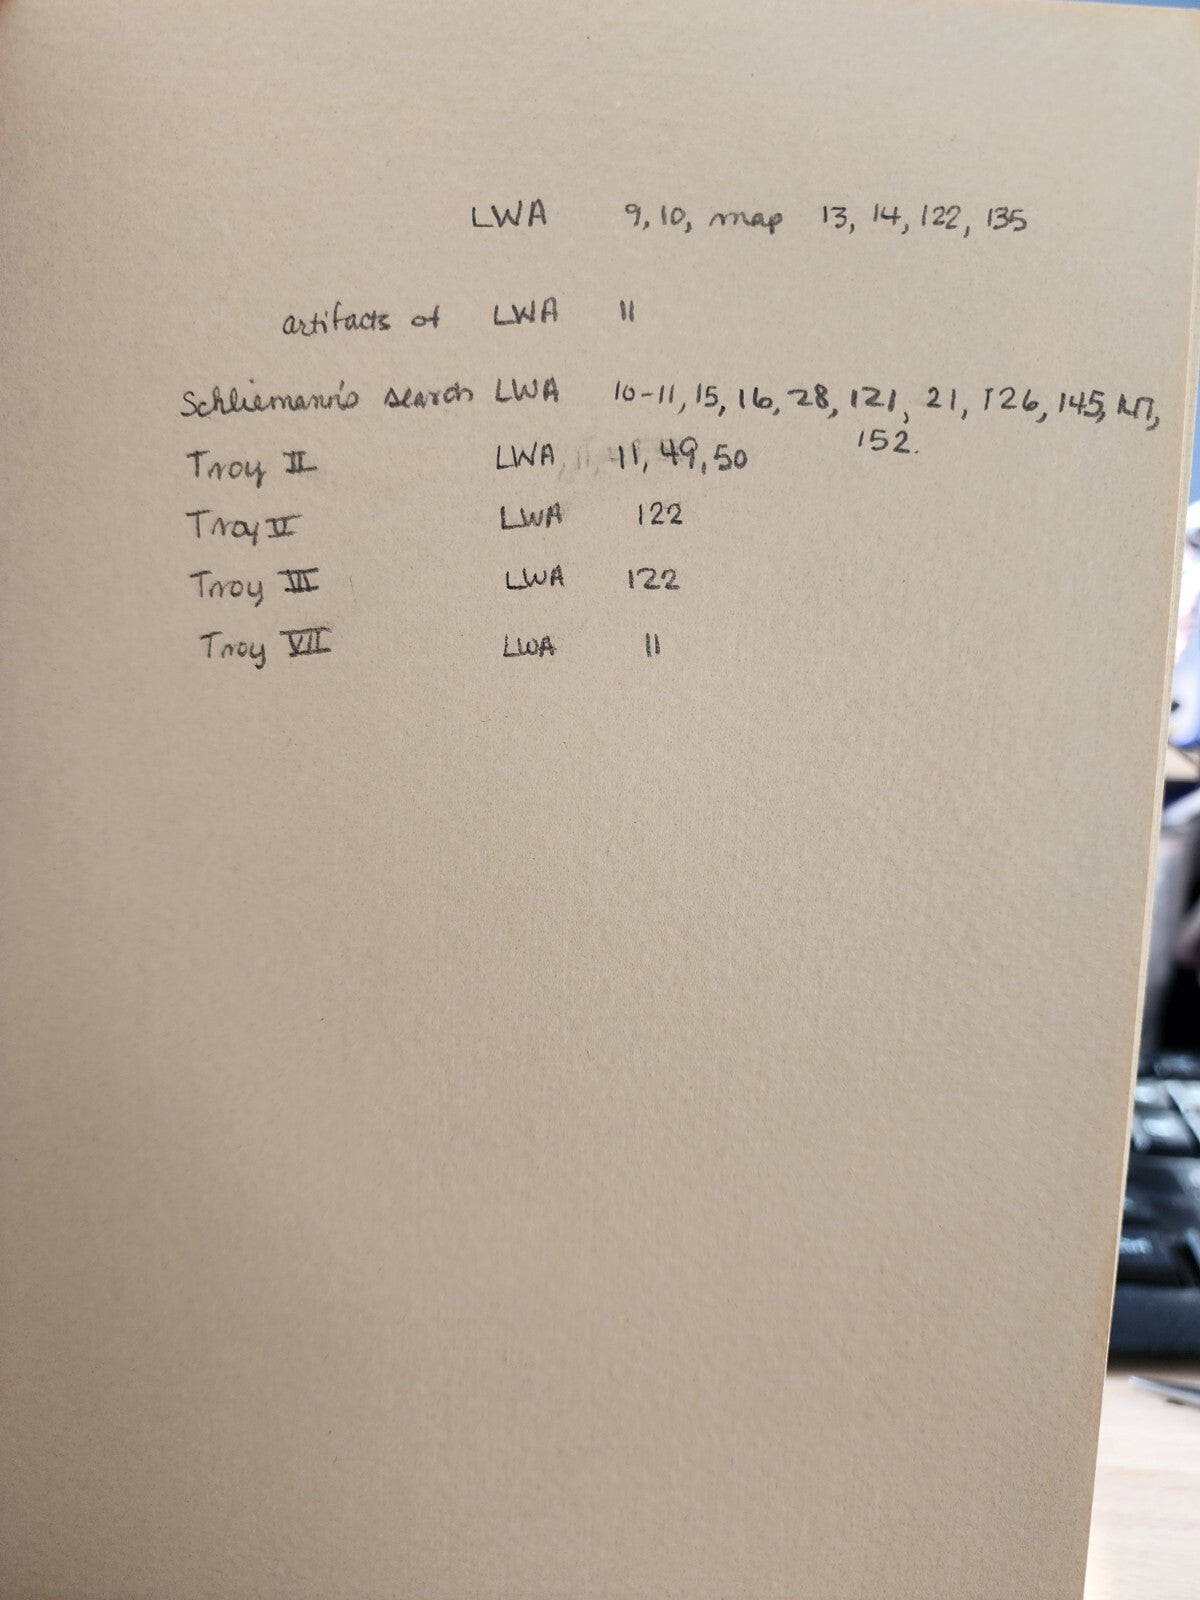 LWA 9, 10, map 13, 14, 122, 135
artifacts of LWA 11
Schliemann's search LWA 10-11, 15, 16, 28, 121, 21, 126, 145, 147,
152.
Troy II LWA 11, 49, 50
Troy LWA 122
Troy LWA 122
Troy VII LWA 11